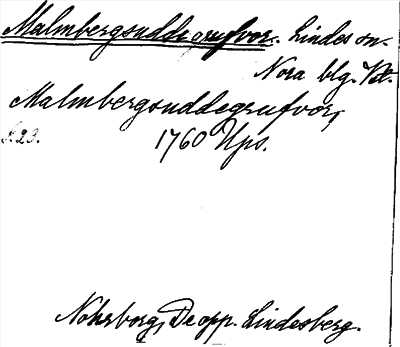 Malmbergsuddegrufvor. Lindes sn.
Nora blg. Vstm.
Malmbergsuddegrufvor,
s. 23. 1760 Ups.
Nohrborg, De opp. Lindesberg.